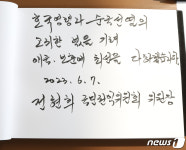 호국영령과 순국선열의
고귀한 뜻을 기려
애국·보훈에 최선을 다하겠습니다
2023. 6. 7.
전현희 국민권익위원회 위원장
news1